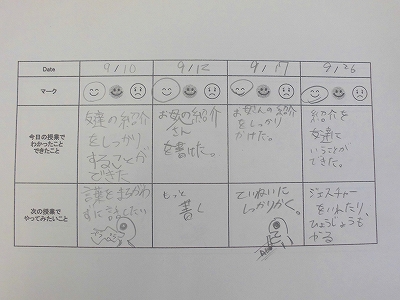 Date 9/10 9/12 9/17 9/26
マーク
今日の授業で
わかったこと
できたこと
友達の紹介
をしっかり
することが
できた
お友の紹介
さん
を書けた。
お友人の紹介
をしっかり
かけた。
紹介を
友達に
いうことが
できた。
次の授業で
やってみたいこと
言葉をまちがわ
ずに話したい
もっと
書く
ていねいに
しっかりかく。
ジェスチャー
をいれたり、
ひょうじょうも
かえる